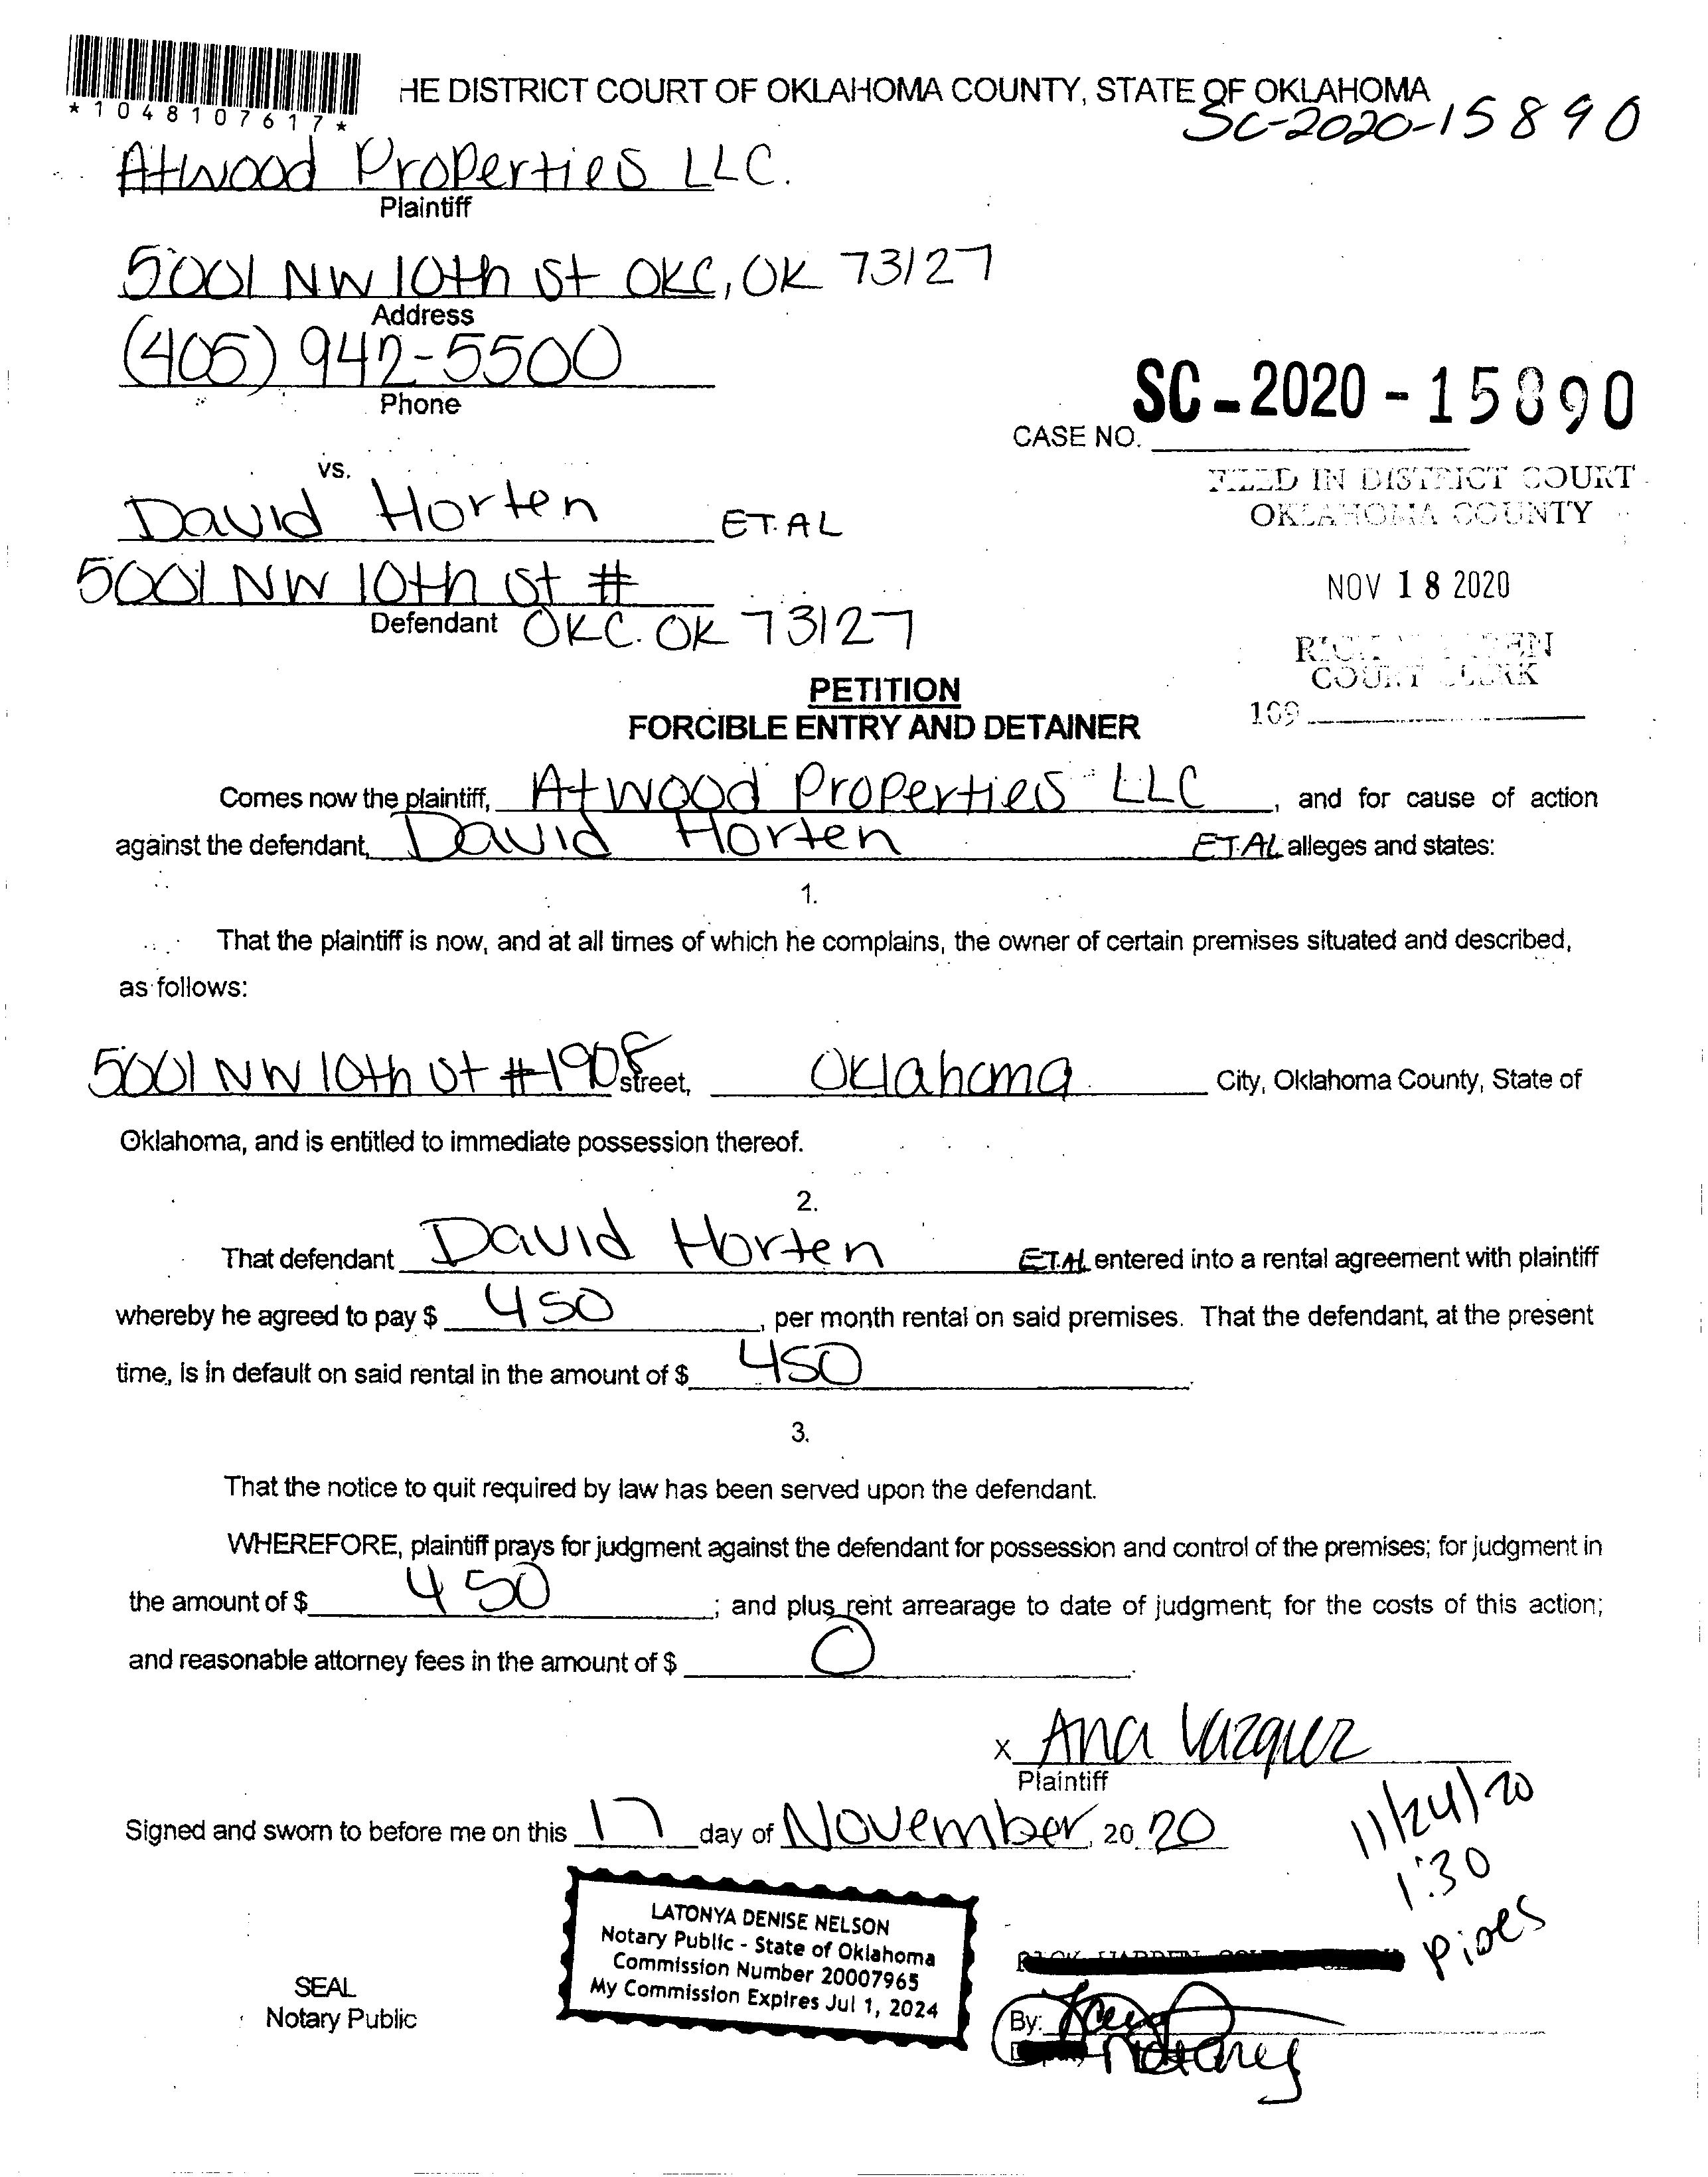 HE DISTRICT COURT OF OKLAHOMA COUNTY, STATE OF OKLAHOMA
*1048107617*
SC-2020-15890
Atwood Properties LLC.
Plaintiff
5001 NW 10th St OKC, OK 73127
Address
(405) 942-5500
Phone
SC-2020-15890
CASE NO.
vs.
FILED IN DISTRICT COURT
OKLAHOMA COUNTY
David Horten ET.AL
5001 NW 10th St #
NOV 18 2020
Defendant OKC. OK 73127
COURT CLERK
109
PETITION
FORCIBLE ENTRY AND DETAINER
Comes now the plaintiff, Atwood Properties LLC, and for cause of action
against the defendant, David Horten ET.AL alleges and states:
1.
That the plaintiff is now, and at all times of which he complains, the owner of certain premises situated and described,
as follows:
5001 NW 10th St #1908 street, Oklahoma City, Oklahoma County, State of
Oklahoma, and is entitled to immediate possession thereof.
2.
That defendant David Horten ET.AL entered into a rental agreement with plaintiff
whereby he agreed to pay $ 450, per month rental on said premises. That the defendant, at the present
time, is in default on said rental in the amount of $ 450.
3.
That the notice to quit required by law has been served upon the defendant.
WHEREFORE, plaintiff prays for judgment against the defendant for possession and control of the premises; for judgment in
the amount of $ 450; and plus rent arrearage to date of judgment, for the costs of this action;
and reasonable attorney fees in the amount of $ 0.
x Ana Vazquez
Plaintiff
Signed and sworn to before me on this 17 day of November, 20 20
11/24/20
1:30
LATONYA DENISE NELSON
Notary Public - State of Oklahoma
Commission Number 20007965
My Commission Expires Jul 1, 2024
SEAL
Notary Public
By:
Notary